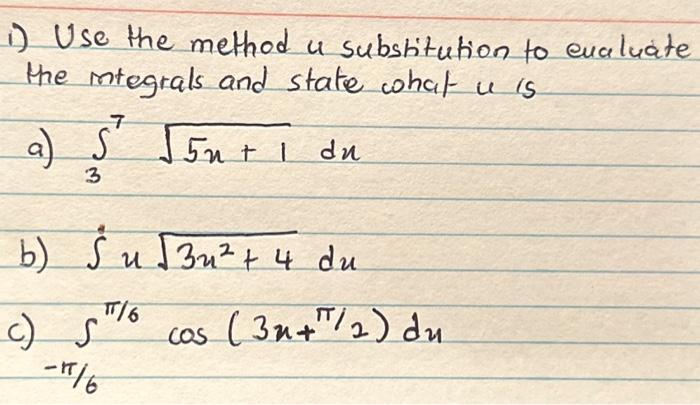 1) Use the method u substitution to evaluate
the integrals and state what u is
a) ∫₃⁷ √(5x + 1) dx
b) ∫ x √(3x² + 4) dx
c) ∫_{-π/6}^{π/6} cos (3x + π/2) dx